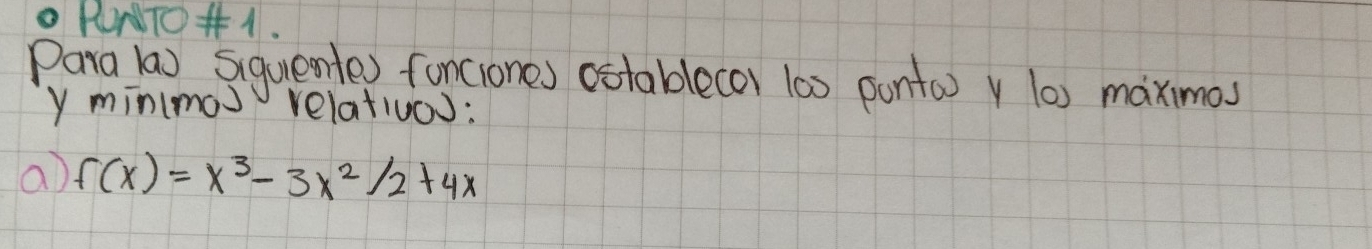 • PUNTO #1.
Para las siguientes funciones establecer los puntos y los máximos
y mínimos relativos:
a) f(x) = x³ - 3x² /2 + 4x